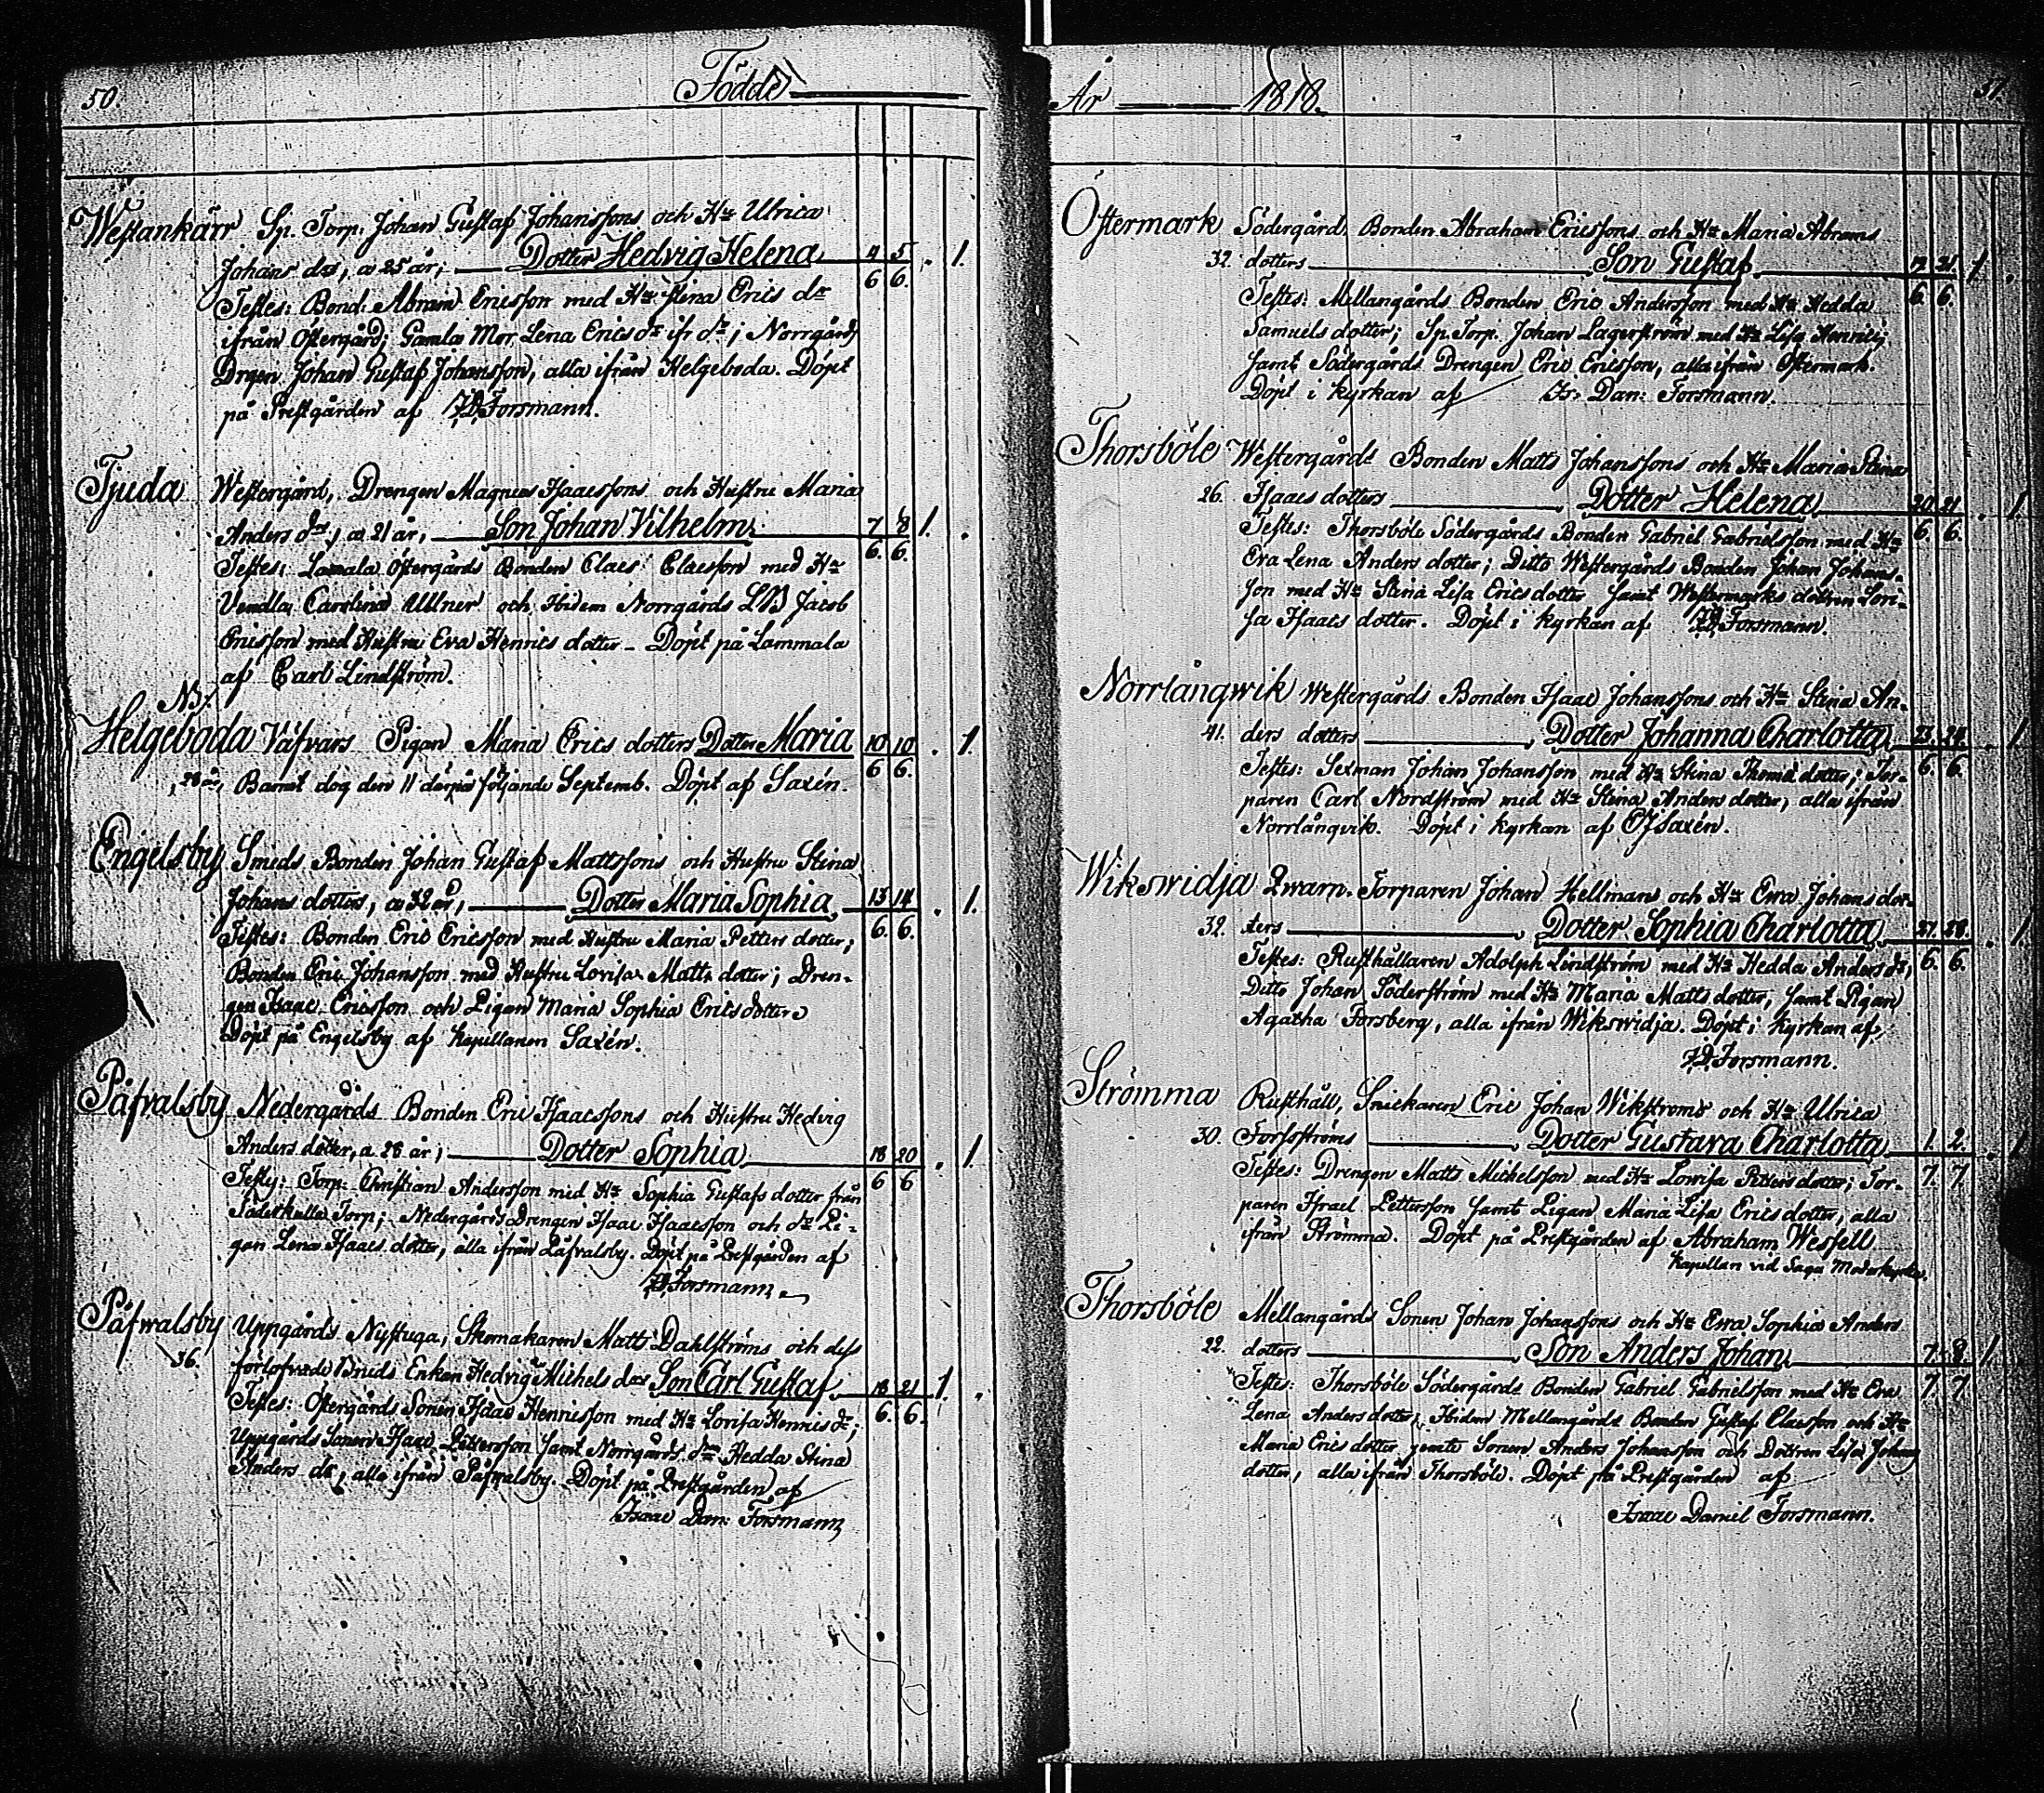 50. Födde
Westankärr Sp. Torp. Johan Gustaf Johanssons och H:u Ulrica
Johans drs, a 25 år; Dotter Hedvig Helena 4 5 . 1.
6 6.
Testes: Bond. Abram Ericsson med H:u Stina Erics dr
ifrån Östergård; Gamla Mor Lena Erics dr ifr d:o; Norrgårds
Drgen Johan Gustaf Johansson, alla ifrån Helgeboda. Döpt
på Prestgården af I.D. Forsmann.
Tjuda Westergård, Drengen Magnus Isaacssons och Hustru Maria
Anders dr, a 21 år, Son Johan Vilhelm 7 8 1. .
6. 6.
Testes: Lamala Östergårds Bonden Claes Claesson med H:u
Vendla Carolina Ullner och Ibidem Norrgårds LB Jacob
Ericsson med Hustru Eva Henrics dotter. Döpt på Lammala
af Carl Lindström.
NB.
Helgeboda Väfvars Pigan Maria Erics dotters Dotter Maria 10 10 . 1.
6 6.
28 år, Barnet dog den 11 derpå följande Septemb. Döpt af Saxén.
Engelsby Smeds Bonden Johan Gustaf Mattssons och Hustru Stina
Johans dotters, a 32 år, Dotter Maria Sophia 13 14 . 1.
6. 6.
Testes: Bonden Eric Ericsson med Hustru Maria Petters dotter;
Bonden Eric Johansson med Hustru Lovisa Matts dotter; Dren-
gen Isaac Ericsson och Pigan Maria Sophia Ericsdotter
Döpt på Engelsby af Kapellanen Saxén.
Påfvalsby Nedergårds Bonden Eric Isaacssons och Hustru Hedvig
Anders dotter, a 28 år; Dotter Sophia 18 20 . 1.
6 6
Testes: Torp: Christian Andersson med H:u Sophia Gustafs dotter från
Söderkulla Torp; Nedergårds Drengen Isaac Isaacsson och d:o Pi-
gan Lena Isaacs dotter, alla ifrån Påfvalsby. Döpt på Prestgården af
I.D. Forsmann
Påfwalsby Uppgårds Nystuga, Skomakaren Matts Dahlströms och dess
36. förlofvade Bruds Enkan Hedvig Michels drs Son Carl Gustaf 18 21 1. .
6. 6.
Testes: Östergårds Sonen Isaac Henricsson med H:u Lovisa Henrics dr;
Uppgårds Sonen Isaac Pettersson samt Norrgårds drn Hedda Stina
Anders dr, alla ifrån Påfwalsby. Döpt på Prestgården af
Isaac Dan: Forsmann
År 1818. 51.
Östermark Södergårds Bonden Abraham Ericssons och H:u Maria Abrams
32. dotters Son Gustaf 19. 21. 1 .
6. 6.
Testes: Mellangårds Bonden Eric Andersson med H:u Hedda
Samuels dotter; Sp. Torp. Johan Lagerström med H:u Lisa Henrics;
samt Södergårds Drengen Eric Ericsson, alla ifrån Östermark.
Döpt i Kyrkan af Is: Dan: Forsmann.
Thorsböle Westergårds Bonden Matts Johanssons och H:u Maria Stina
26. Isaacs dotters Dotter Helena 20. 21 . 1
6. 6.
Testes: Thorsböle Södergårds Bonden Gabriel Gabrielsson med H:u
Eva Lena Anders dotter; Ditto Westergårds Bonden Johan Johans-
son med H:u Stina Lisa Erics dotter samt Westermarks dottren Lovi-
sa Isaacs dotter. Döpt i Kyrkan af I.D. Forsmann.
Norrlångwik Westergårds Bonden Isaac Johanssons och H:u Stina An-
41. ders dotters Dotter Johanna Charlotta 23. 24. . 1
6. 6.
Testes: Sexman Johan Johansson med H:u Stina Thomas dotter; Tor-
paren Carl Nordström med H:u Stina Anders dotter, alla ifrån
Norrlångvik. Döpt i Kyrkan af Saxén.
Wikswidja Qwarn-Torparen Johan Hellmans och H:u Ewa Johans dot-
32. ters Dotter Sophia Charlotta 27. 28. . 1
6. 6.
Testes: Rusthållaren Adolph Lindström med H:u Hedda Anders dr;
Ditto Johan Söderström med H:u Maria Matts dotter, samt Pigan
Agatha Forsberg, alla ifrån Wikswidja. Döpt i Kyrkan af
I.D. Forsmann.
Strömma Rusthåll, Snickaren Eric Johan Wikströms och H:u Ulrica
30. Forsströms Dotter Gustava Charlotta 1. 2. . 1
7. 7
Testes: Drengen Matts Michelsson med H:u Lowisa Petters dotter; Tor-
paren Israel Pettersson samt Pigan Maria Lisa Erics dotter, alla
ifrån Strömma. Döpt på Prestgården af Abraham Wesfell
Kapellan vid Sagu Moderkyrka.
Thorsböle Mellangårds Sonen Johan Johanssons och H:u Ewa Sophia Anders
22. dotters Son Anders Johan 7. 8. 1.
7. 7
Testes: Thorsböle Södergårds Bonden Gabriel Gabrielsson med H:u Eva
Lena Anders dotter, Ibidem Mellangårds Bonden Gustaf Claesson och H:u
Maria Erics dotter jemte Sonen Anders Johansson och Dottren Lisa Johans
dotter, alla ifrån Thorsböle. Döpt på Prestgården af
Isaac Daniel Forsmann.